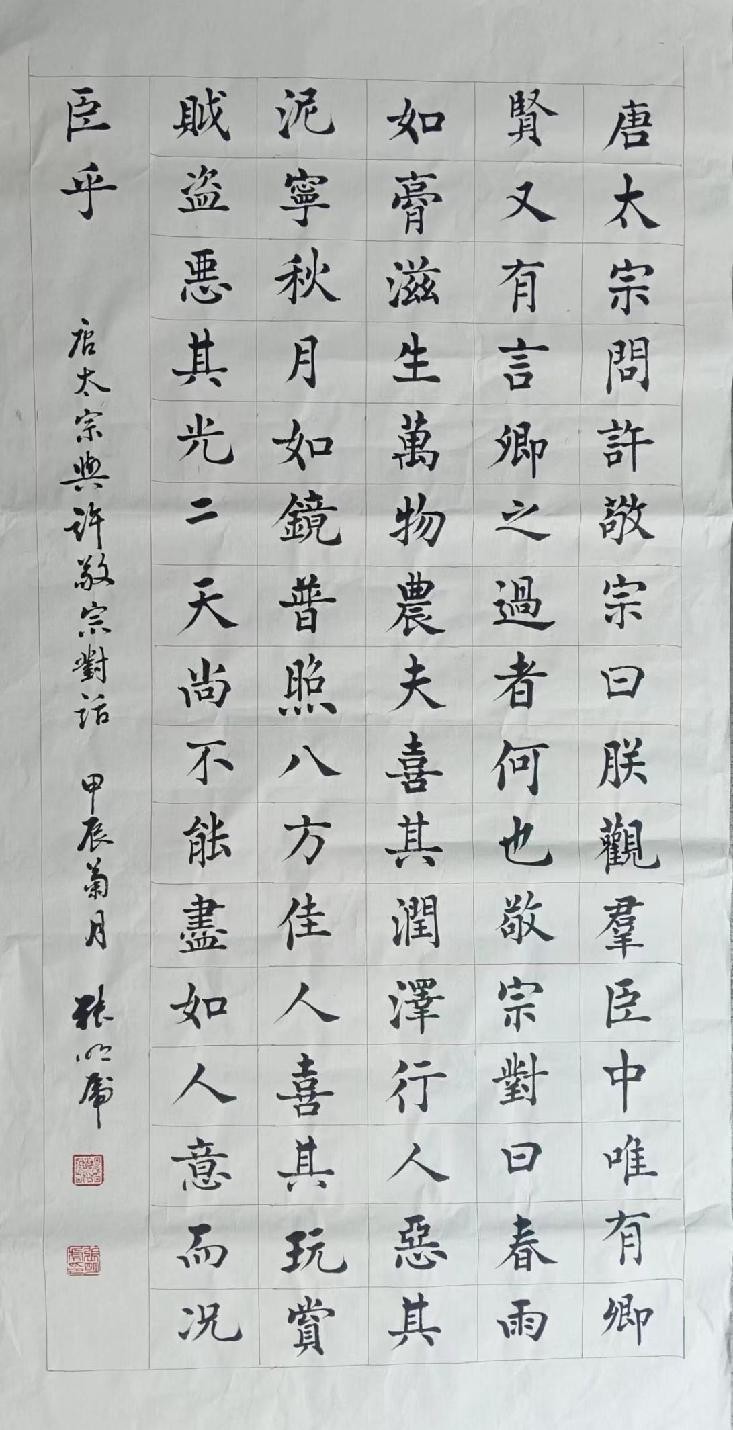 唐太宗問許敬宗曰朕觀羣臣中唯有卿
賢又有言卿之過者何也敬宗對曰春雨
如膏滋生萬物農夫喜其潤澤行人惡其
泥寧秋月如鏡普照八方佳人喜其玩賞
賊盜悪其光二天尚不能盡如人意而况
臣乎
唐太宗與許敬宗對話 甲辰菊月 張明虎